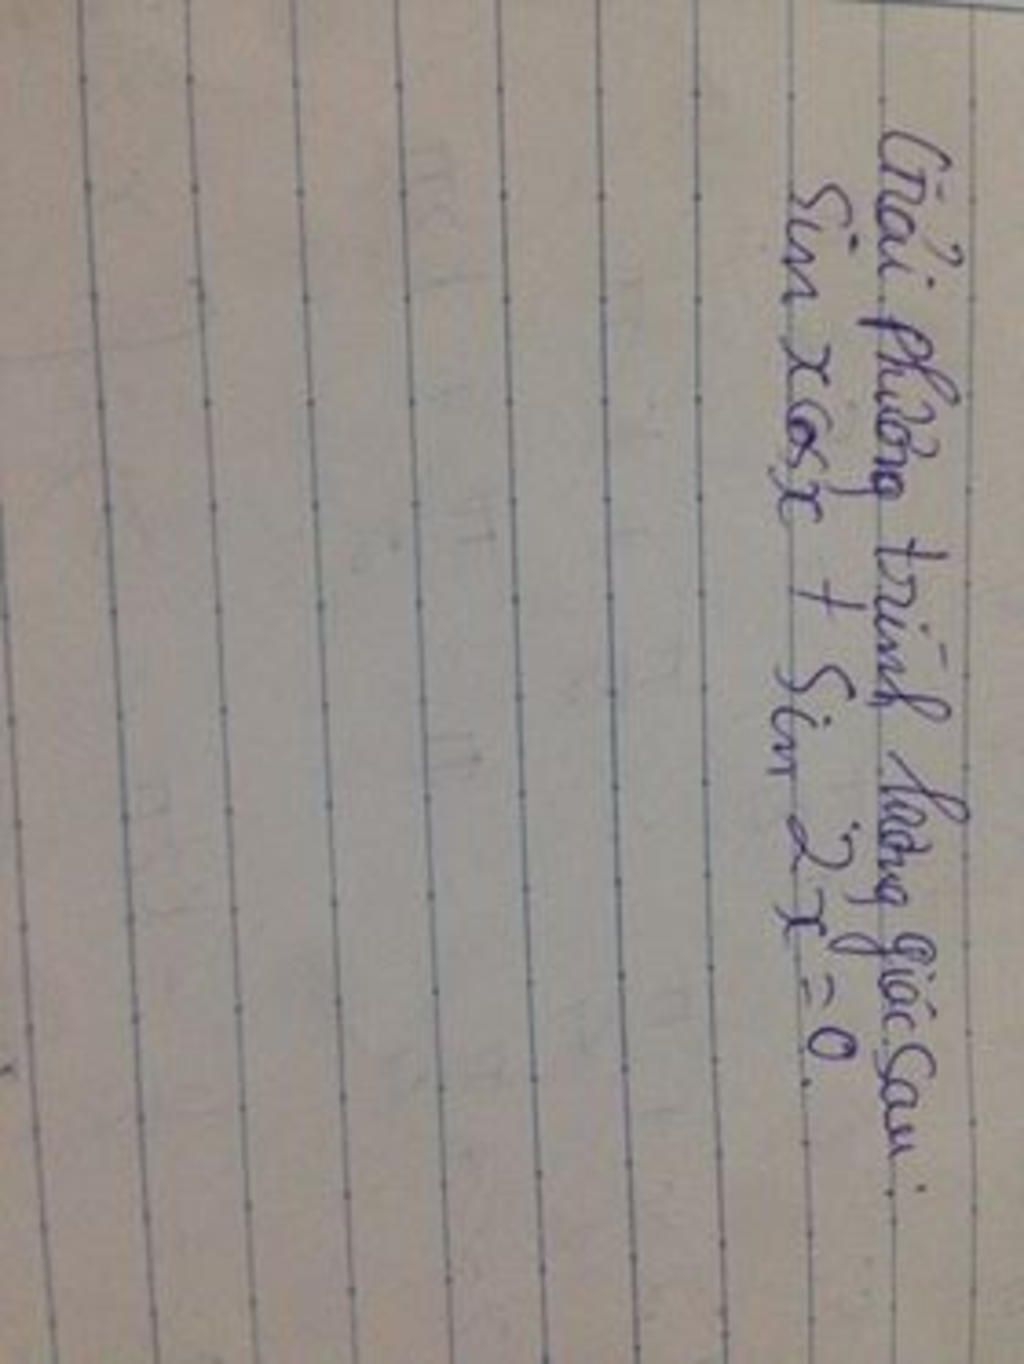 Giải phương trình lượng giác sau:
Sin x cos x + Sin 2x = 0.